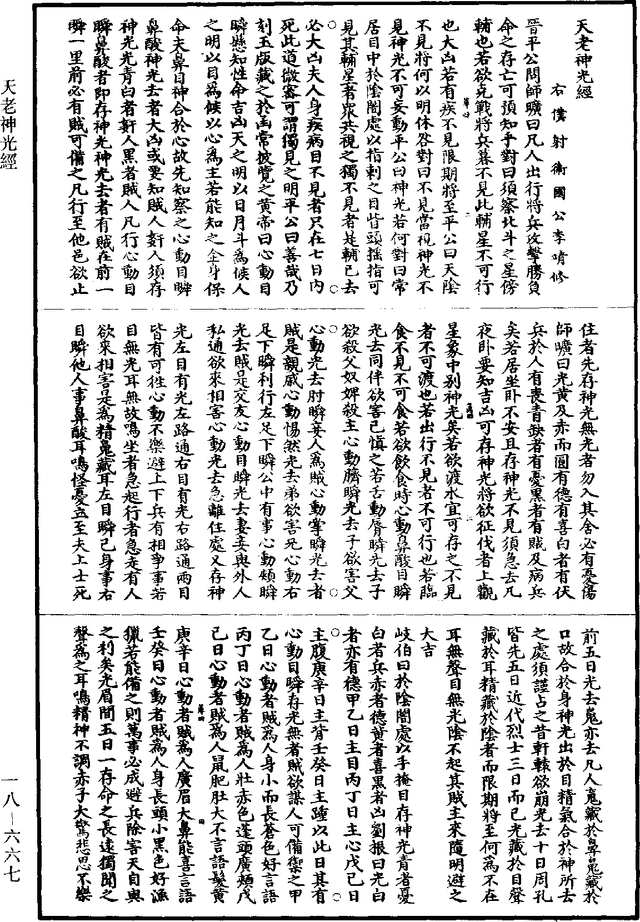 天老神光經
右僕射衛國公李靖修
晉平公問師曠曰凡人出行將兵攻擊勝負
命之存亡可預知乎對曰須察北斗之星傍
輔也若欲克戰將兵暮不見此輔星不可行
也大凶若有疾不見限期將至平公曰天陰
不見將何以明休咎對曰不見當視神光不
見神光不可妄動平公曰神光若何對曰常
居目中於陰闇處以指剌之目眥頭摇指可
見其輔星者衆共視之獨不見者是輔已去
必大凶夫人身疾病目不見者只在七日内
死此道微密可謂獨見之明平公曰善哉乃
刻玉版藏之於函常披覽之黄帝曰心動目
瞬懸知性命吉凶天之明以日月斗為候人
之明以目為候以心為主若能知之全身保
命夫鼻目神合於心故先知察之心動目瞬
鼻酸神光去者大凶或要知賊人姧人須存
神光光青白者姧人黑者賊人凡行心動目
瞬鼻酸者即存神光神光去者有賊在前一
瞬一里前必有賊可備之凡行至他邑欲止
住者先存神光無光者勿入其舍必有憂傷
師曠曰光黄及赤而圓有德有喜白者有伏
兵於人有喪青缺者有憂黑者有賊及病兵
矣若居坐卧不安且存神光不見須急去凡
夜卧要知吉凶可存神光將欲征伐者上觀
星象中别神光矣若欲渡水宜可存之不見
者不可渡也若出行不見者不可行也若臨
食不見不可食若欲飲食時心動鼻酸目瞬
光去同伴欲害己慎之若舌動脣瞬光去子
欲殺父奴婢殺主心動臍瞬光去子欲害父
心動光去肘瞬妻人為賊心動掌瞬光去者
賊是親戚心動惕然光去弟欲害兄心動右
足下瞬利行左足下瞬公中有事心動頰瞬
光去賊是交友心動目瞬光去妻妾與外人
私通欲來相害心動光去急離住處又存神
光左目有光左路通右目有光右路通兩目
皆有可徃心動不樂避上下兵有相争事若
目無光耳無故鳴坐者急起行者急走有人
欲來相害是為精䰟藏耳左目瞬已身事右
目瞬他人事鼻酸耳鳴怪憂立至夫上士死
前五日光去䰟亦去凡人䰟藏於鼻䰟藏於
口故合於身神光出於目精氣合於神所去
之處須謹占之昔軒轅欲崩光去十日周孔
皆先五日近代烈士三日而已光藏於目聲
藏於耳精藏於陰者而限期將至何為不在
耳無聲目無光陰不起其賊主來隨明避之
大吉
岐伯曰於陰闇處以手掩目存神光青者憂
白者兵赤者德黄者喜黑者凶劉根曰光白
者亦有德甲乙日主目丙丁日主心戊己日
主腹庚辛日主背壬癸日主踵以此日其有
心動目瞬存光無者賊欲謀人可備禦之甲
乙日心動者賊為人身小而長蒼色好言語
丙丁日心動者賊為人壯赤色蓬頭廣頰戊
己日心動者賊為人鼠肥肚大不言語髮黄
庚辛日心動者賊為人廣眉大鼻能喜言語
壬癸日心動者賊為人身長頭小黑色好漁
獵若能備之則萬事必成避兵除害天自與
之利矣光眉間五日一存命之長遠獨聞之
聲為之耳鳴精神不調赤子大驚悲思不樂
天老神光經
一八—六六七